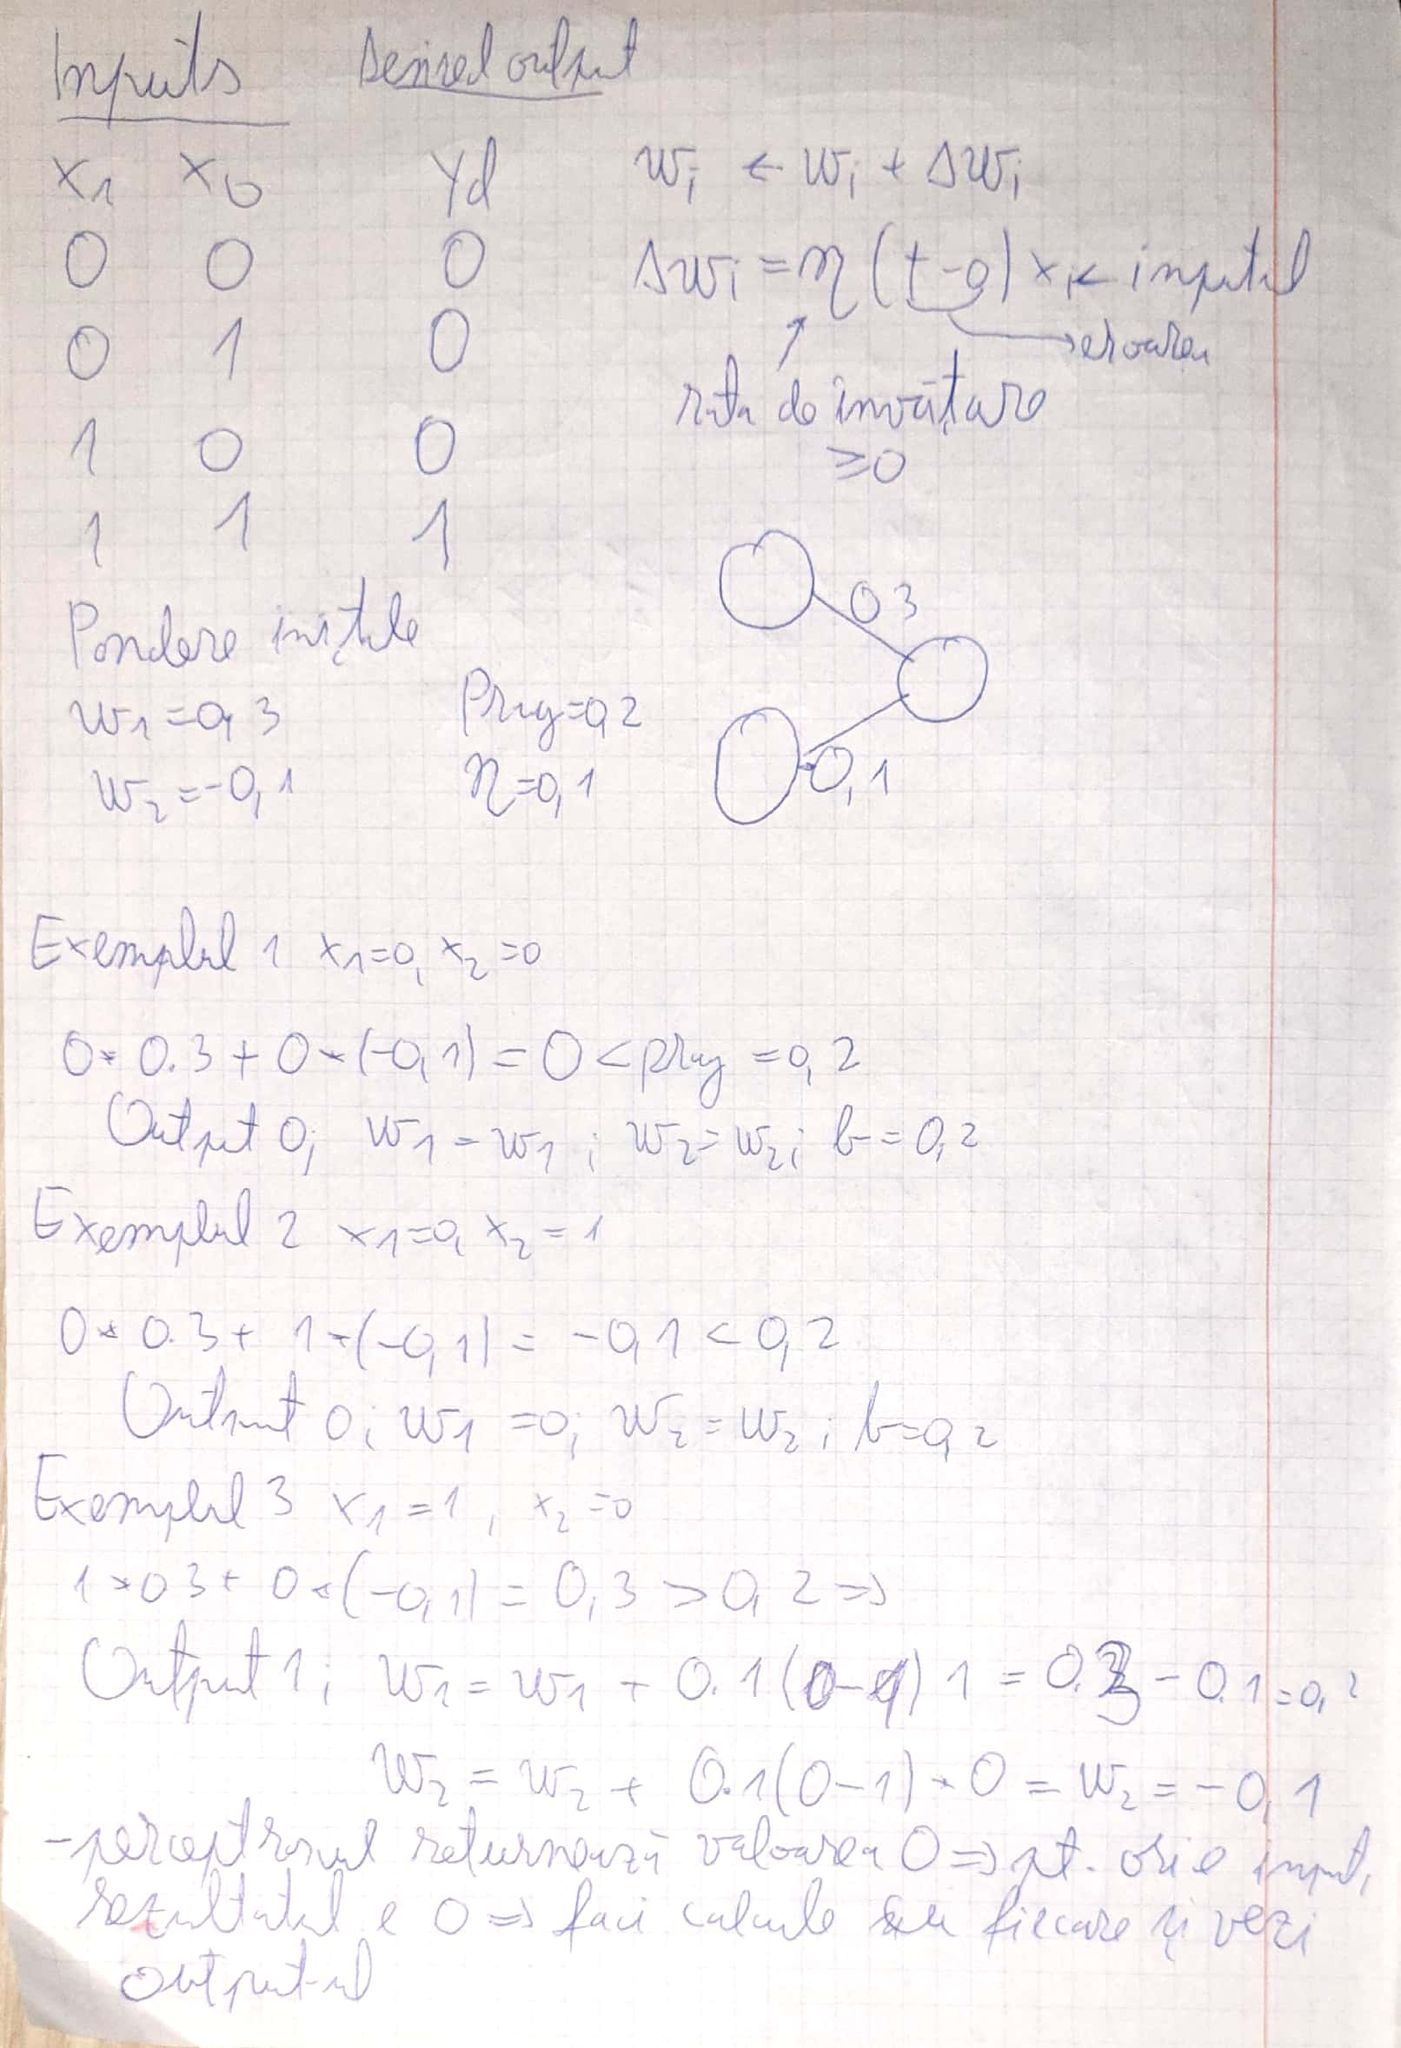 Inputs Desired output
x1 x0 yd wi ← wi + Δwi
0 0 0 Δwi = η (t-o) xi ← inputul
0 1 0 → eroarea
rata de învățare
1 0 0 ≥0
1 1 1
0 3
Pondere inițiale
w1 = 0,3 Prag = 0,2
w2 = -0,1 η = 0,1 -0,1
Exemplul 1 x1=0, x2=0
0* 0.3 + 0*(-0,1) = 0 < prag = 0,2
Output 0; w1 = w1 ; w2 = w2; b = 0,2
Exemplul 2 x1=0, x2=1
0* 0.3 + 1*(-0,1) = -0,1 < 0,2
Output 0; w1 = 0; w2 = w2 ; b=0,2
Exemplul 3 x1 = 1, x2 = 0
1*0 3 + 0*(-0,1) = 0,3 > 0,2 =>
Output 1; w1 = w1 + 0.1(0-1) 1 = 0.3 - 0.1 = 0,2
w2 = w2 + 0.1(0-1)*0 = w2 = -0,1
-perceptronul returnează valoarea 0 => pt. orie input,
rezultatul e 0 => faci calcule fiecare și vezi
output-ul